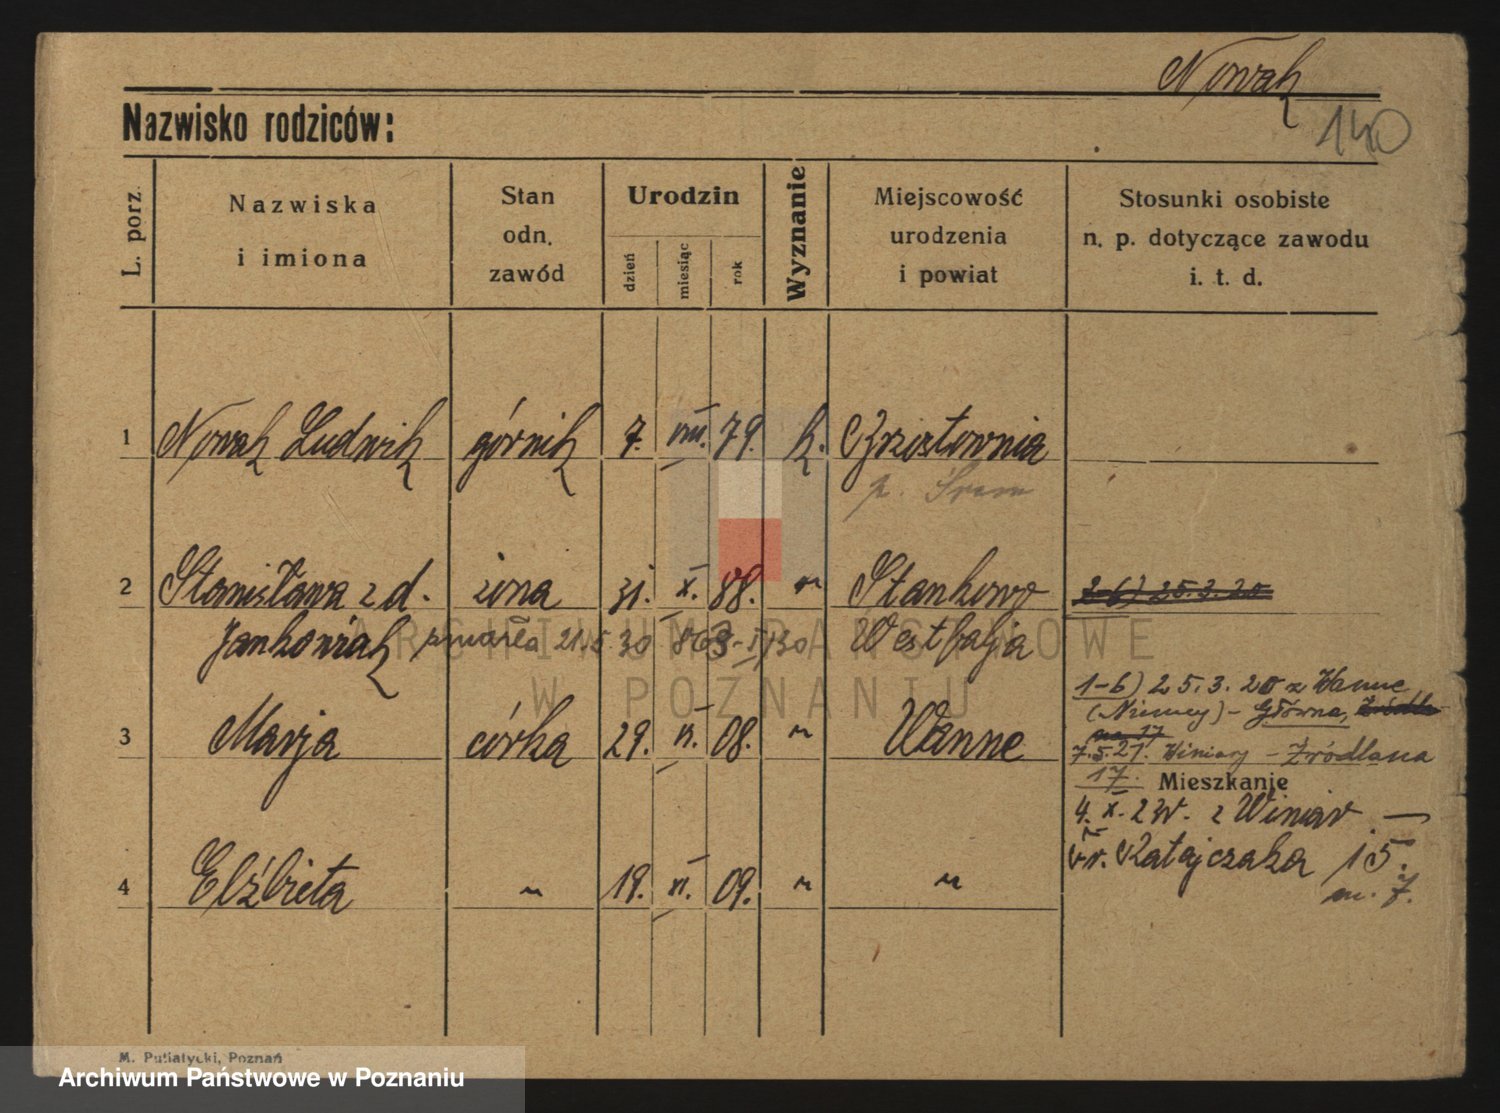 Nowak
140
Nazwisko rodziców:
L. porz.
Nazwiska
i imiona
Stan
odn.
zawód
Urodzin
dzień
miesiąc
rok
Wyznanie
Miejscowość
urodzenia
i powiat
Stosunki osobiste
n. p. dotyczące zawodu
i. t. d.
1 Nowak Ludwik górnik 7. VIII. 79. k. Chrzistownia
p. Śrem
2 Stanisława z d. żona 31. X. 88. " Stankowo 2-6) 25.3.20
Jankowiak zmarła 21.5.30 Westfalja
1-6) 25.3.20 z Wanne
(Niemcy) - Główna, Źródla
na 17
3 Marja córka 29. VI. 08. " Wanne
7.5.21. Winiary - Źródlana
17. Mieszkanie
4. X. 21r. z Winiar —
Katajczaka 15.
m. 7.
4 Elżbieta " 19. XI. 09. " "
ARCHIWUM PAŃSTWOWE
W POZNANIU
M. Putiatycki, Poznań
Archiwum Państwowe w Poznaniu